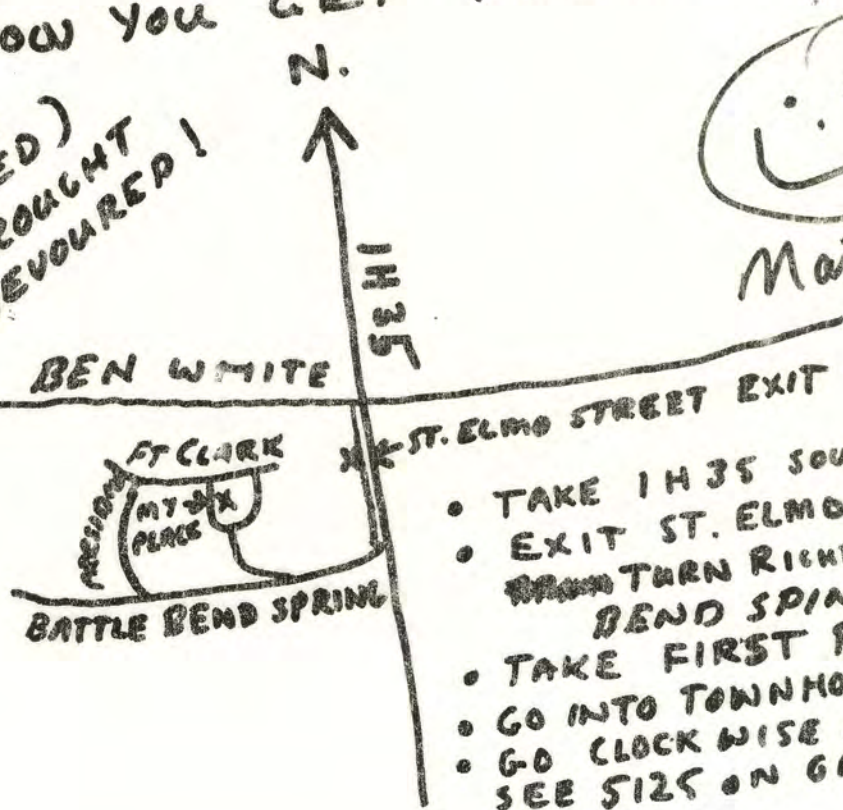 OW YOU GE
N.
ED)
ROUGHT
EVOURED!
IH 35
Ma
BEN WHITE
ST. ELMO STREET EXIT
FT CLARK
MY
PLACE
BATTLE BEND SPRING
• TAKE IH 35 SOU
• EXIT ST. ELMO
TURN RIGH
BEND SPIN
• TAKE FIRST
• GO INTO TOWNHO
• GO CLOCKWISE
SEE 5125 ON G